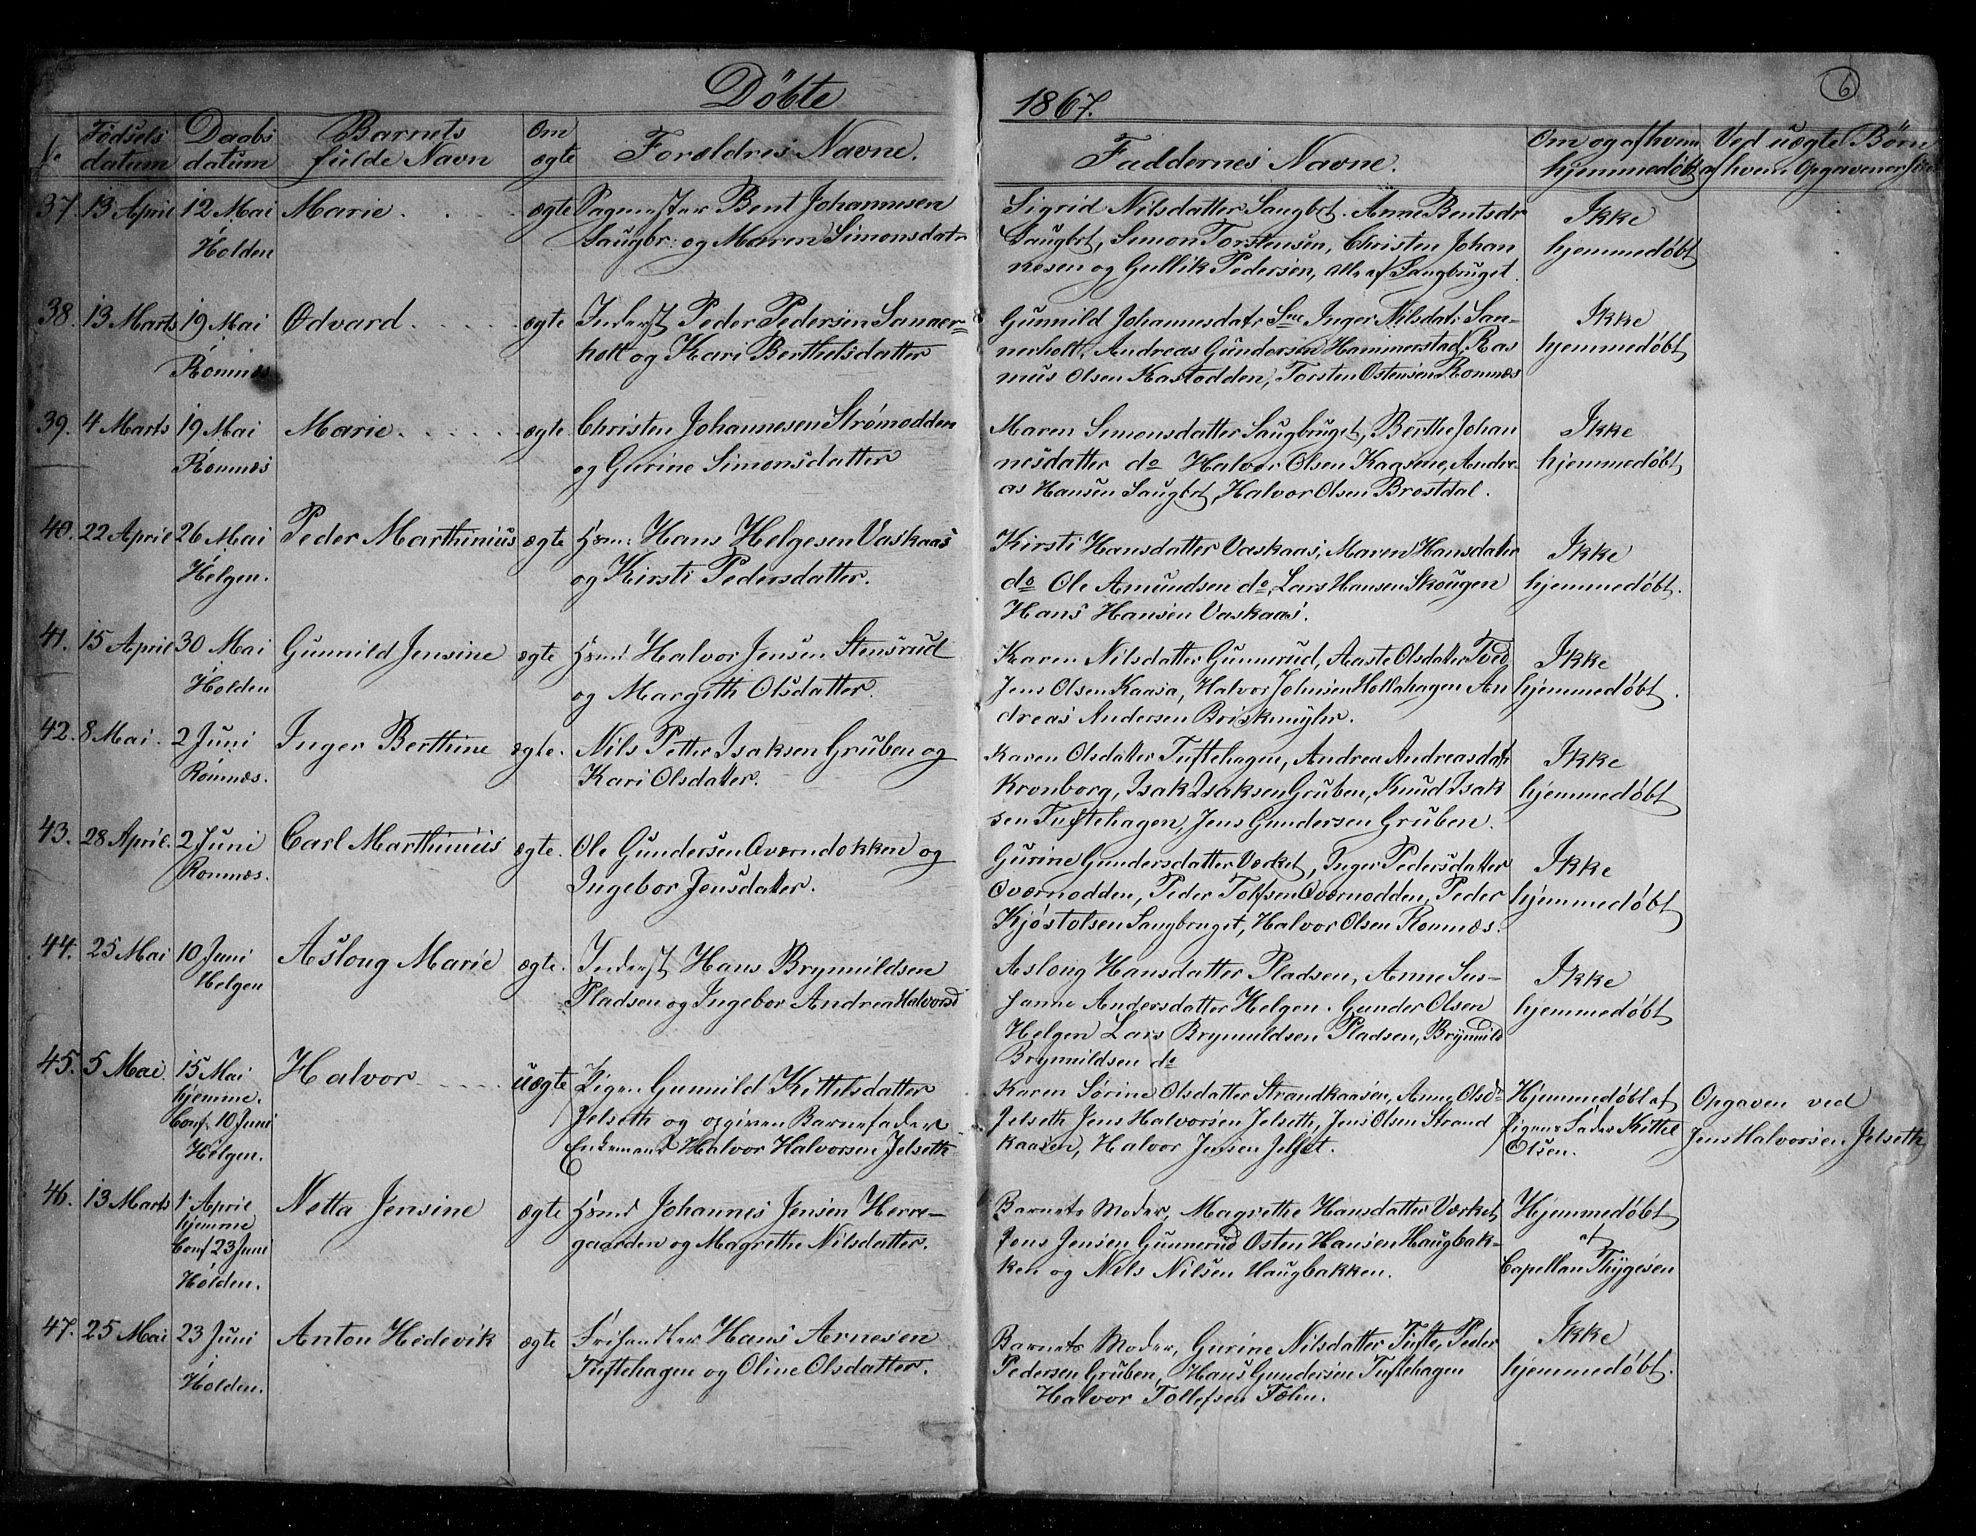 Döbte 1867. 6
No. Födsels datum Daabs datum Barnets fulde Navn Om ægte Forældres Navne. Faddernes Navne. Om og af hvem hjemmedøbt Ved uægte Børn af hvem Opgaven er
37. 13 April 12 Mai Marie. ægte Bent Johannesen Sigrid Nilsdatter Saugbrt. Anne Bentsdr Ikke
Holden Saugbr. og Maren Simonsdatr Saugbrt, Simon Torstensen, Christen Johan hjemmedøbt
nesen og Gullik Pedersen, alle af Saugbruget.
38. 13 Marts 19 Mai Odvard. ægte Inderst Peder Pedersen Sanner- Gunnild Johannesdatr Inger Nilsdatr San- Ikke
Romnæs holt og Kari Berthelsdatter nerholt, Andreas Gundersen Hammerstad, Ras hjemmedøbt
mus Olsen Kastodden, Torsten Ostensen Romnæs
39. 4 Marts 19 Mai Marie. ægte Christen Johannesen Strømodden Maren Simonsdatter Saugbruget, Berthe Johan Ikke
Romnæs og Gurine Simonsdatter nesdatter do Halvor Olsen Kaasene, Andre- hjemmedøbt
as Hansen Saugbrt, Halvor Olsen Brostdal.
40. 22 April 26 Mai Peder Marthinius ægte Hans Helgesen Vaskaas Kirsti Hansdatter Vaskaas, Maren Hansdatter Ikke
Helgen. og Kirsti Pedersdatter. do Ole Amundsen do, Lars Hansen Skougen hjemmedøbt.
Hans Hansen Vaskaas.
41. 15 April 30 Mai Gunnild Jensine ægte Halvor Jensen Stensrud Karen Nilsdatter Gunnerud, Aaste Olsdatter Tved Ikke
Holden og Margith Olsdatter. Jens Olsen Kaasa, Halvor Johnsen Hollahagen An hjemmedøbt.
dreas Andersen Briskemyhr.
42. 8 Mai. 2 Juni Inger Berthine ægte. Nils Petter Isaksen Gruben og Karen Olsdatter Tuftehagen, Andrea Andreasdatr Ikke
Romnæs. Kari Olsdatter. Kronborg, Isak Isaksen Gruben, Knud Isak hjemmedøbt
sen Tuftehagen, Jens Gundersen Gruben.
43. 28 April. 2 Juni Carl Marthinius ægte. Ole Gundersen Overndokken og Gurine Gundersdatter Værket, Inger Pedersdatter Ikke
Romnæs. Ingebor Jensdatter. Oværnodden, Peder Tolfsen Oværnodden, Peder hjemmedøbt
Kjøstolsen Saugbruget, Halvor Olsen Romnæs.
44. 25 Mai 10 Juni Aslong Marie ægte. Inderst Hans Brynnildsen Aslong Hansdatter Pladsen, Anne Sus- Ikke
Helgen Pladsen og Ingebor Andrea Halvorsd sanne Andersdatter Helgen. Gunder Olsen hjemmedøbt
Helgen Lars Brynnildsen Pladsen, Brynnild
Brynnildsen do
45. 5 Mai. 15 Mai Halvor uægte Pigen Gunnild Kittelsdatter Karen Sørine Olsdatter Strandkaasen, Anne Olsdr Hjemmedøbt af Opgaven ved
hjemme. Jelseth og opgiven Barnefader Jelseth Jens Halvorsen Jelseth, Jens Olsen Strand Pigens Fader Kittel Jens Halvorsen Jelseth
Conf. 10 Juni Enkemand Halvor Halvorsen Jelseth kaasen, Halvor Jensen Jelset. Olsen.
Helgen.
46. 13 Marts 1 April Netta Jensine ægte Johannes Jensen Herre- Barnets Moder, Magrethe Hansdatter Værket Hjemmedøbt
hjemme gaarden og Magrethe Nilsdatter. Jens Jensen Gunnerud Osten Hansen Haugbak- af
Conf 23 Juni ken og Nils Nilsen Haugbakken. Capellan Thygesen
Holden.
47. 25 Mai 23 Juni Anton Hedevik ægte Hans Arnesen Barnets Moder, Gurine Nilsdatter Tufte, Peder Ikke
Holden. Tuftehagen og Oline Olsdatter. Pedersen Gruben, Hans Gundersen Tuftehagen hjemmedøbt.
Halvor Tollefsen Fælin.